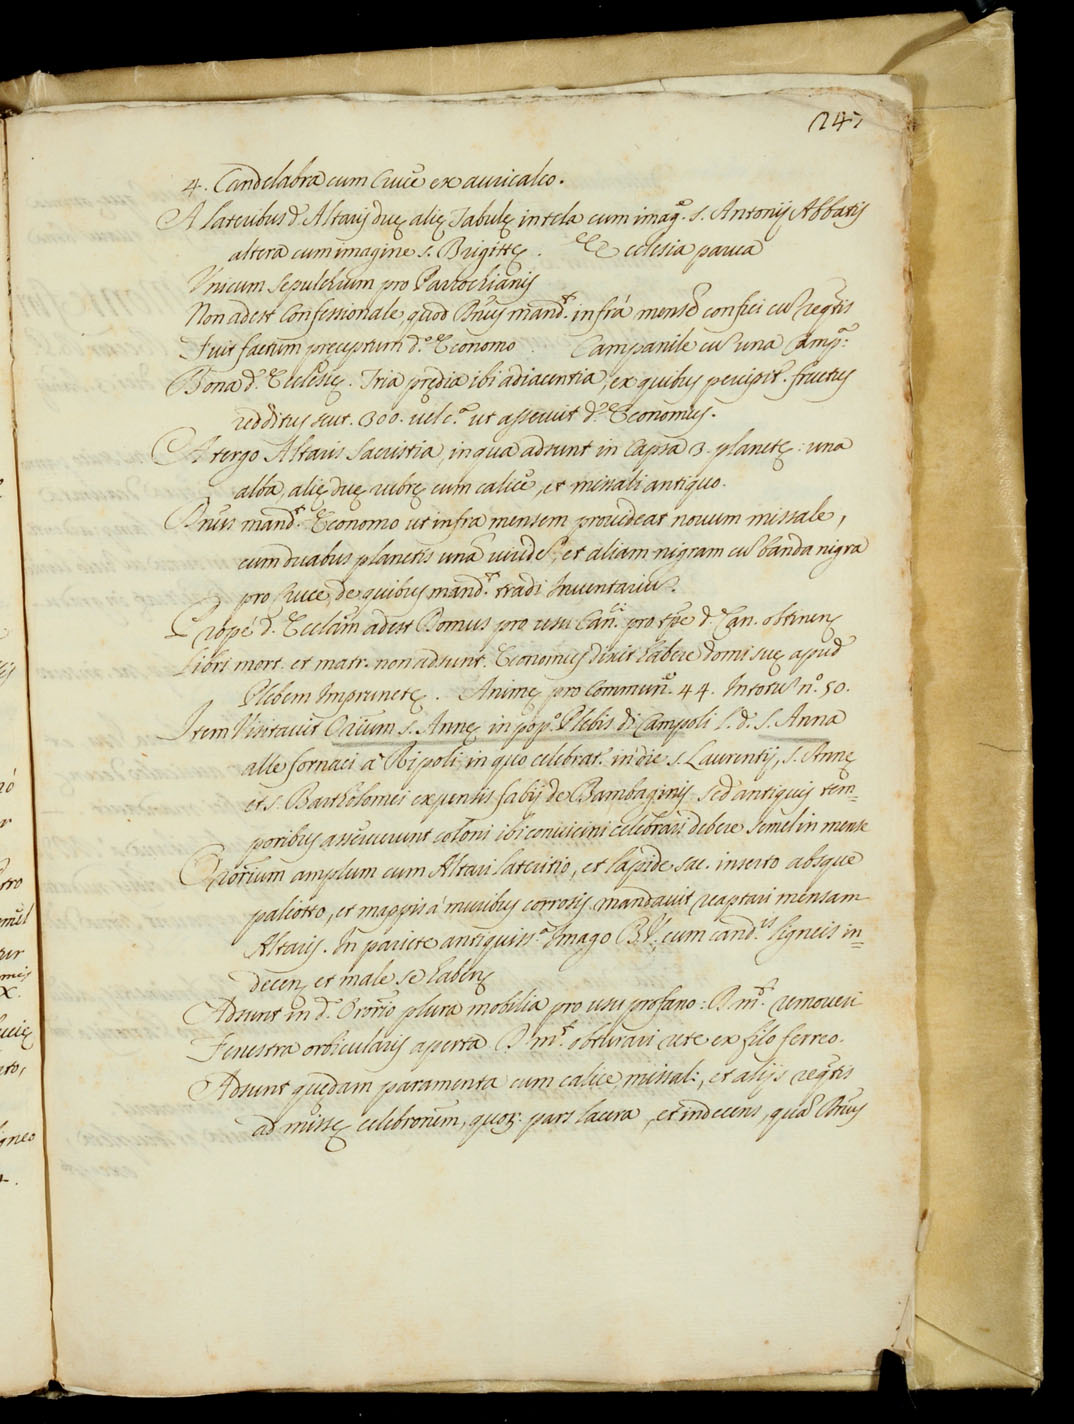 247
4. Candelabra cum Cruce ex auricalco.
A lateribus d. Altaris duę alię Tabulę in tela cum imag.e s. Antonij Abbatis
altera cum imagine s. Brigittę. Ecclesia parua
Vnicum Sepulchrum pro Parrochianis
Non adest Confessionale, quod Ill.mus mand.t infrà mensē confici cū reqtis
Fuit factum pręceptum d.o Economo. Campanile cū una Camp.a
Bona d. Ecclesię. Tria prędia ibi adiacentia, ex quibus percipit. fructus
redditus scut. 300. uel c.a ut asseruit d.s Economus.
A tergo Altaris Sacristia, in qua adsunt in Capsa 3. planetę: una
alba, alię duę rubrę cum calice, et missali antiquo.
mand.t Economo ut infra mensem prouideat nouum missale,
cum duabus planetis una uiridē, et aliam nigram cū banda nigra
pro Cruce, de quibus mand.t tradi Inuentariū.
Propè d. Ecclam adest Domus pro usu Can.ci pro tpe d. Can. obtinen.
Libri mort. et matr. non adsunt. Economus dixit habere domi suę apud
Plebem Imprunetę. Animę pro Commun.e 44. In totū n.o 50.
Item Visitauit Orium S. Annę in pop.o Plebis di Campoli l. d. S. Anna
alle fornaci a Ripoli in quo celebrat. in die s. Laurentij, s. Annę
et s. Bartholomei expensis fabij de Bambaginis sed antiquis tem=
poribus asseuerunt coloni ibi conuicini celebrari debere semel in mense
Oratorium amplum cum Altari lateritio, et lapide sac. inserto absque
paliotto, et mappis a muribus corrosis mandauit reaptari mensam
Altaris. In pariete antiquiss.a Imago B. V. cum cand.is ligneis in=
decen. et male se haben.
Adsunt in d. Orōrio plura mobilia pro usu profano: R. m.t remoueri
Fenestra orbicularis aperta R. m.t obturari rete ex filo ferreo.
Adsunt quędam paramenta cum calice, missali, et alijs reqtis
ad missę celebrōnem, quor. pars lacera, et indecens, quā